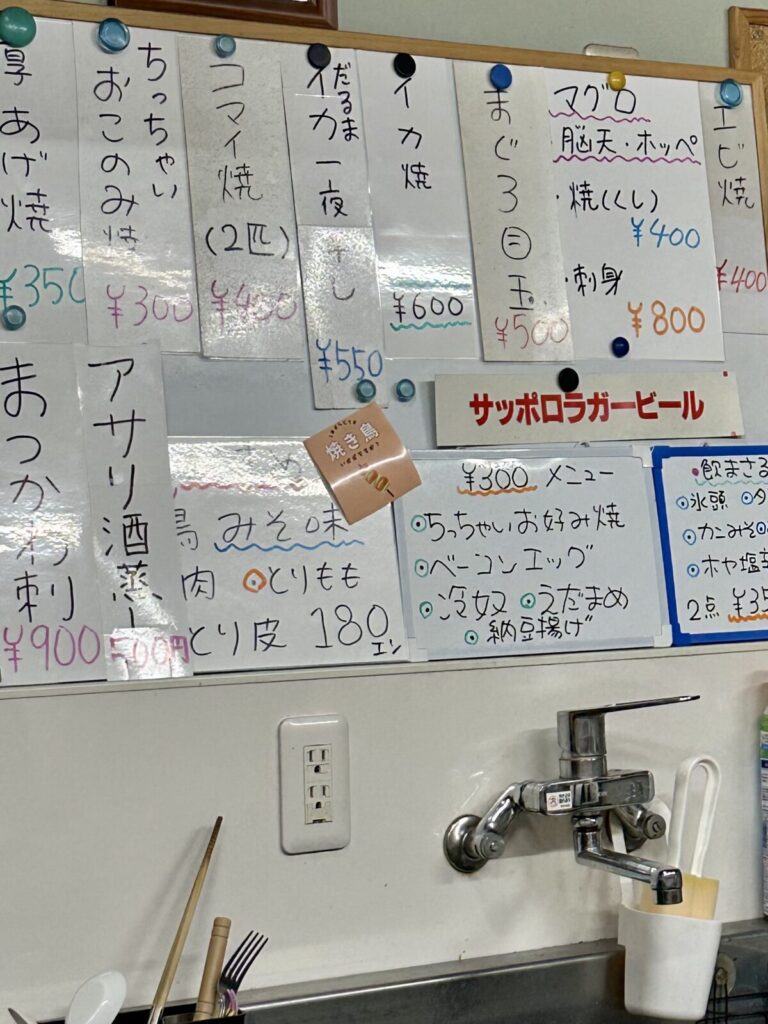 厚あげ焼
¥350
ちっちゃい
おこのみ焼
¥300
コマイ焼
(2匹)
¥450
だるま
イカ一夜干し
¥550
イカ焼
¥600
まぐろ目玉
¥500
マグロ
脳天・ホッペ
・焼(くし)
¥400
・刺身
¥800
エビ焼
¥400
サッポロラガービール
まつかわ刺
¥900
アサリ酒蒸し
500円
焼き鳥
いかがですか?
鳥 みそ味
肉 とりもも
とり皮 180エン
¥300 メニュー
ちっちゃいお好み焼
ベーコンエッグ
冷奴 えだまめ
納豆揚げ
・飲まさる
氷頭 タ
カニみそ
ホヤ塩辛
2点 ¥35